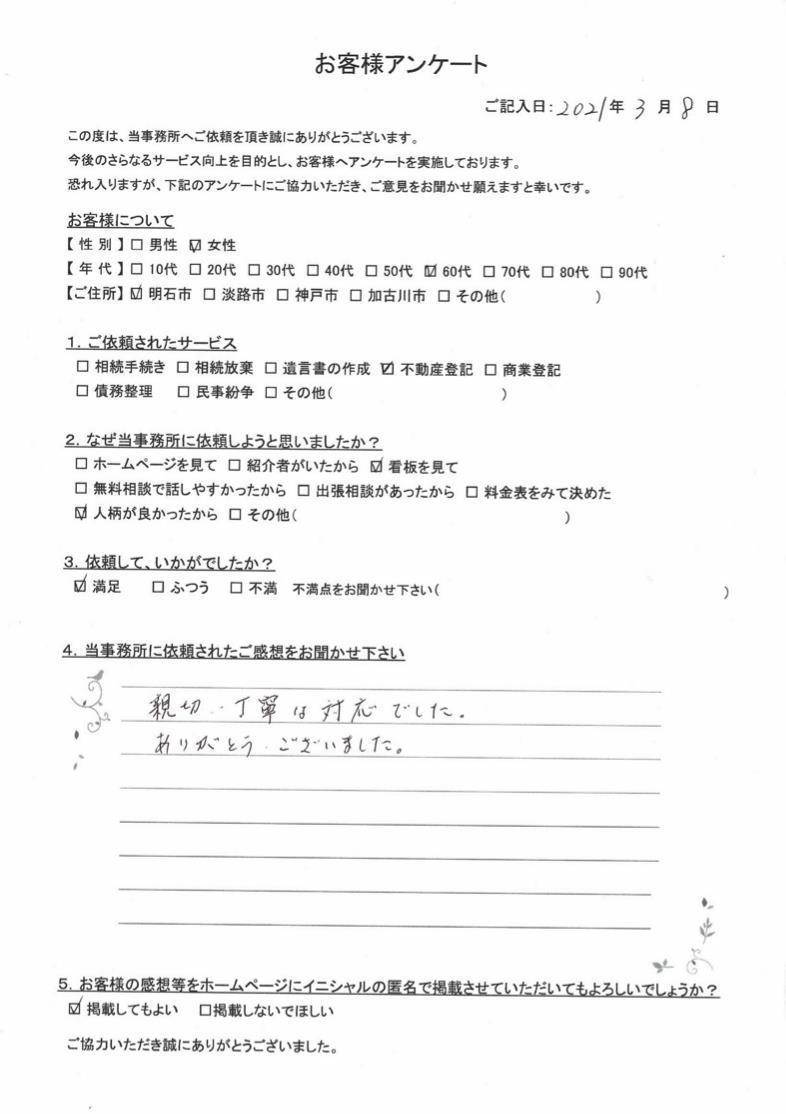 お客様アンケート
ご記入日:2021年 3 月 8 日
この度は、当事務所へご依頼を頂き誠にありがとうございます。
今後のさらなるサービス向上を目的とし、お客様へアンケートを実施しております。
恐れ入りますが、下記のアンケートにご協力いただき、ご意見をお聞かせ願えますと幸いです。
お客様について
【 性 別 】□ 男性 ☑ 女性
【 年 代 】□ 10代 □ 20代 □ 30代 □ 40代 □ 50代 ☑ 60代 □ 70代 □ 80代 □ 90代
【ご住所】☑ 明石市 □ 淡路市 □ 神戸市 □ 加古川市 □ その他( )
1. ご依頼されたサービス
□ 相続手続き □ 相続放棄 □ 遺言書の作成 ☑ 不動産登記 □ 商業登記
□ 債務整理 □ 民事紛争 □ その他( )
2. なぜ当事務所に依頼しようと思いましたか?
□ ホームページを見て □ 紹介者がいたから ☑ 看板を見て
□ 無料相談で話しやすかったから □ 出張相談があったから □ 料金表をみて決めた
☑ 人柄が良かったから □ その他( )
3. 依頼して、いかがでしたか?
☑ 満足 □ ふつう □ 不満 不満点をお聞かせ下さい( )
4. 当事務所に依頼されたご感想をお聞かせ下さい
親切・丁寧な対応でした。
ありがとうございました。
5. お客様の感想等をホームページにイニシャルの匿名で掲載させていただいてもよろしいでしょうか?
☑ 掲載してもよい □掲載しないでほしい
ご協力いただき誠にありがとうございました。